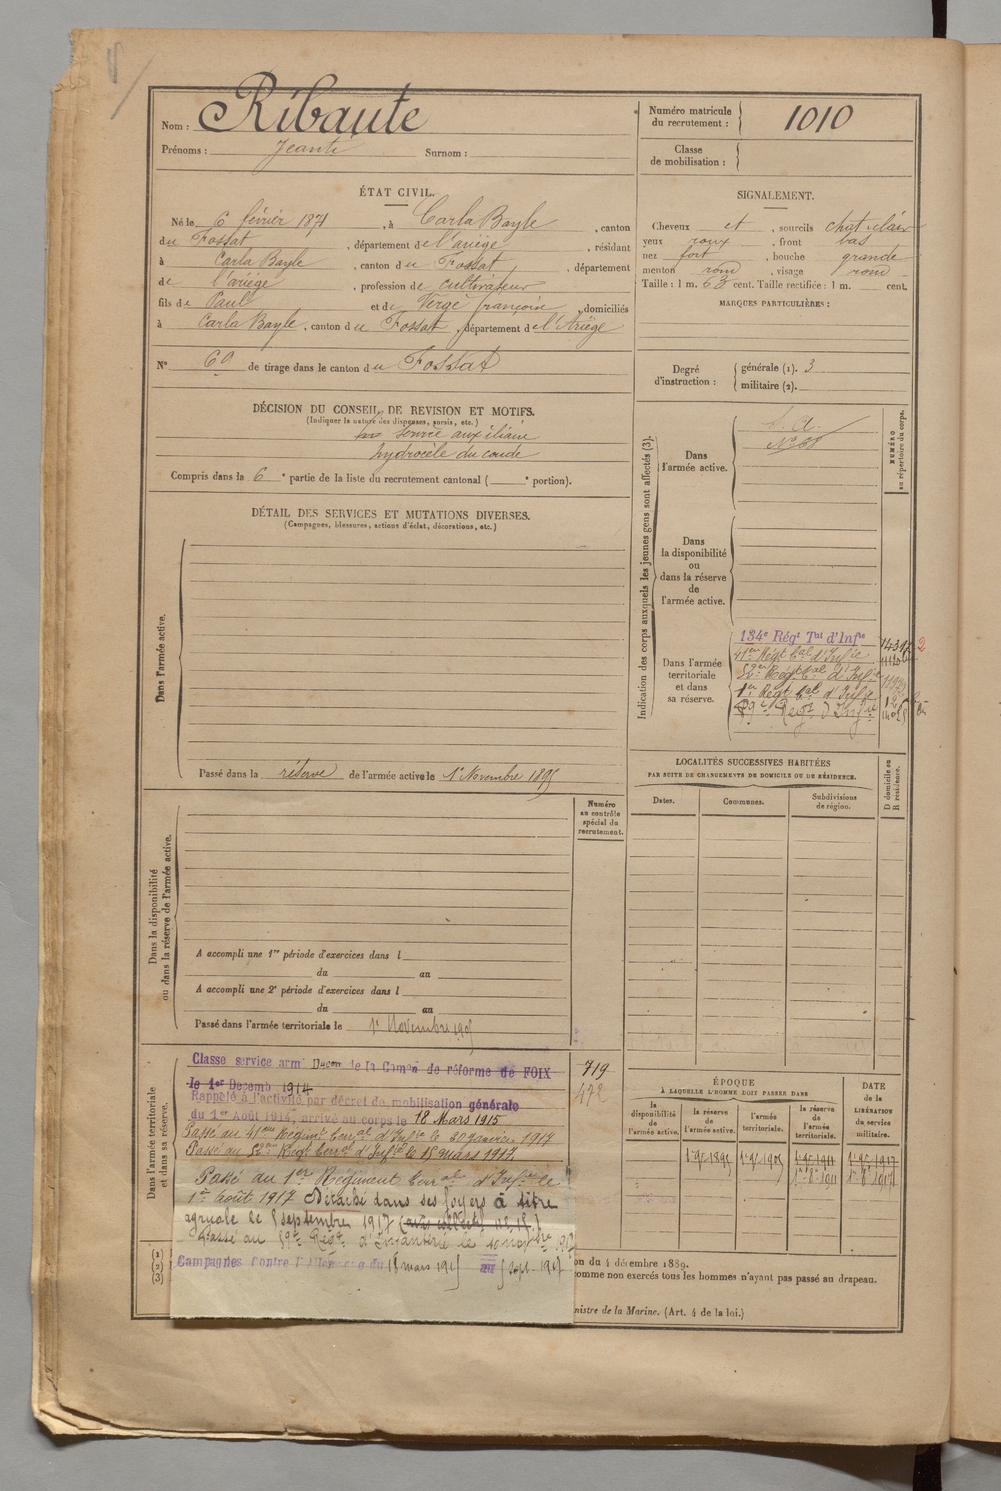 Nom : Ribaute
Prénoms : Jeanti Surnom :
Numéro matricule du recrutement : 1010
Classe de mobilisation :
ÉTAT CIVIL.
Né le 6 février 1871, à Carla Bayle, canton
du Fossat, département de l'ariège, résidant
à Carla Bayle, canton du Fossat, département
de l'ariège, profession de cultivateur
fils de Paul et de Vergé françoise, domiciliés
à Carla Bayle, canton du Fossat, département de l'Ariège
N° 60 de tirage dans le canton du Fossat
SIGNALEMENT.
Cheveux et, sourcils chat. clair
yeux roux, front bas
nez fort, bouche grande
menton rond, visage rond
Taille : 1 m. 63 cent. Taille rectifiée : 1 m. cent.
MARQUES PARTICULIÈRES :
Degré d'instruction : générale (1). 3
militaire (2).
DÉCISION DU CONSEIL DE REVISION ET MOTIFS.
(Indiquer la nature des dispenses, sursis, etc.)
service auxiliaire
hydrocèle du coude
Compris dans la 6e partie de la liste du recrutement cantonal ( e portion).
DÉTAIL DES SERVICES ET MUTATIONS DIVERSES.
(Campagnes, blessures, actions d'éclat, décorations, etc.)
Dans l'armée active.
Passé dans la réserve de l'armée active le 1er Novembre 1895
Indication des corps auxquels les jeunes gens sont affectés (3).
NUMÉRO au répertoire du corps.
Dans l'armée active.
S. A.
N° 68
Dans la disponibilité ou dans la réserve de l'armée active.
Dans l'armée territoriale et dans sa réserve.
134e Régt Tal d'Infie
41eme Régt Cal d'Infie
52eme Régt Cal d'Infie
1er Régt Cal d'Infie
59e Régt d'Infie
LOCALITÉS SUCCESSIVES HABITÉES
PAR SUITE DE CHANGEMENTS DE DOMICILE OU DE RÉSIDENCE.
Dates. Communes. Subdivisions de région. D domicile ou R résidence.
Numéro au contrôle spécial du recrutement.
Dans la disponibilité ou dans la réserve de l'armée active.
A accompli une 1re période d'exercices dans l
du au
A accompli une 2e période d'exercices dans l
du au
Passé dans l'armée territoriale le 1er Novembre 1905
Dans l'armée territoriale et dans sa réserve.
Classe service armé Décon de la Comon de réforme de FOIX
le 1er Decemb 1914
Rappelé à l'activité par décret de mobilisation générale
du 1er Août 1914, arrivé au corps le 18 Mars 1915
Passé au 41eme Régimt Terral d'Infie le 20 janvier 1917
Passé au 52eme Régt Terral d'Infie le 15 mars 1917
Passé au 1er Régiment Terral d'Infie le
1er août 1917 Détaché dans ses foyers à titre
agricole le 5 septembre 1917
Passé au 59e Régt d'Infanterie le 10 novbre 1917
Campagnes Contre l'Allemagne du 18 mars 1915 au 5 Sept. 1917
719
472
ÉPOQUE
À LAQUELLE L'HOMME DOIT PASSER DANS
la disponibilité de l'armée active. la réserve de l'armée active. l'armée territoriale. la réserve de l'armée territoriale.
DATE de la LIBÉRATION du service militaire.
1er 9bre 1895 1er 9bre 1905 1er 9bre 1911 1er 9bre 1917
(1)
(2)
(3)
on du 4 décembre 1889.
comme non exercés tous les hommes n'ayant pas passé au drapeau.
nistre de la Marine. (Art. 4 de la loi.)